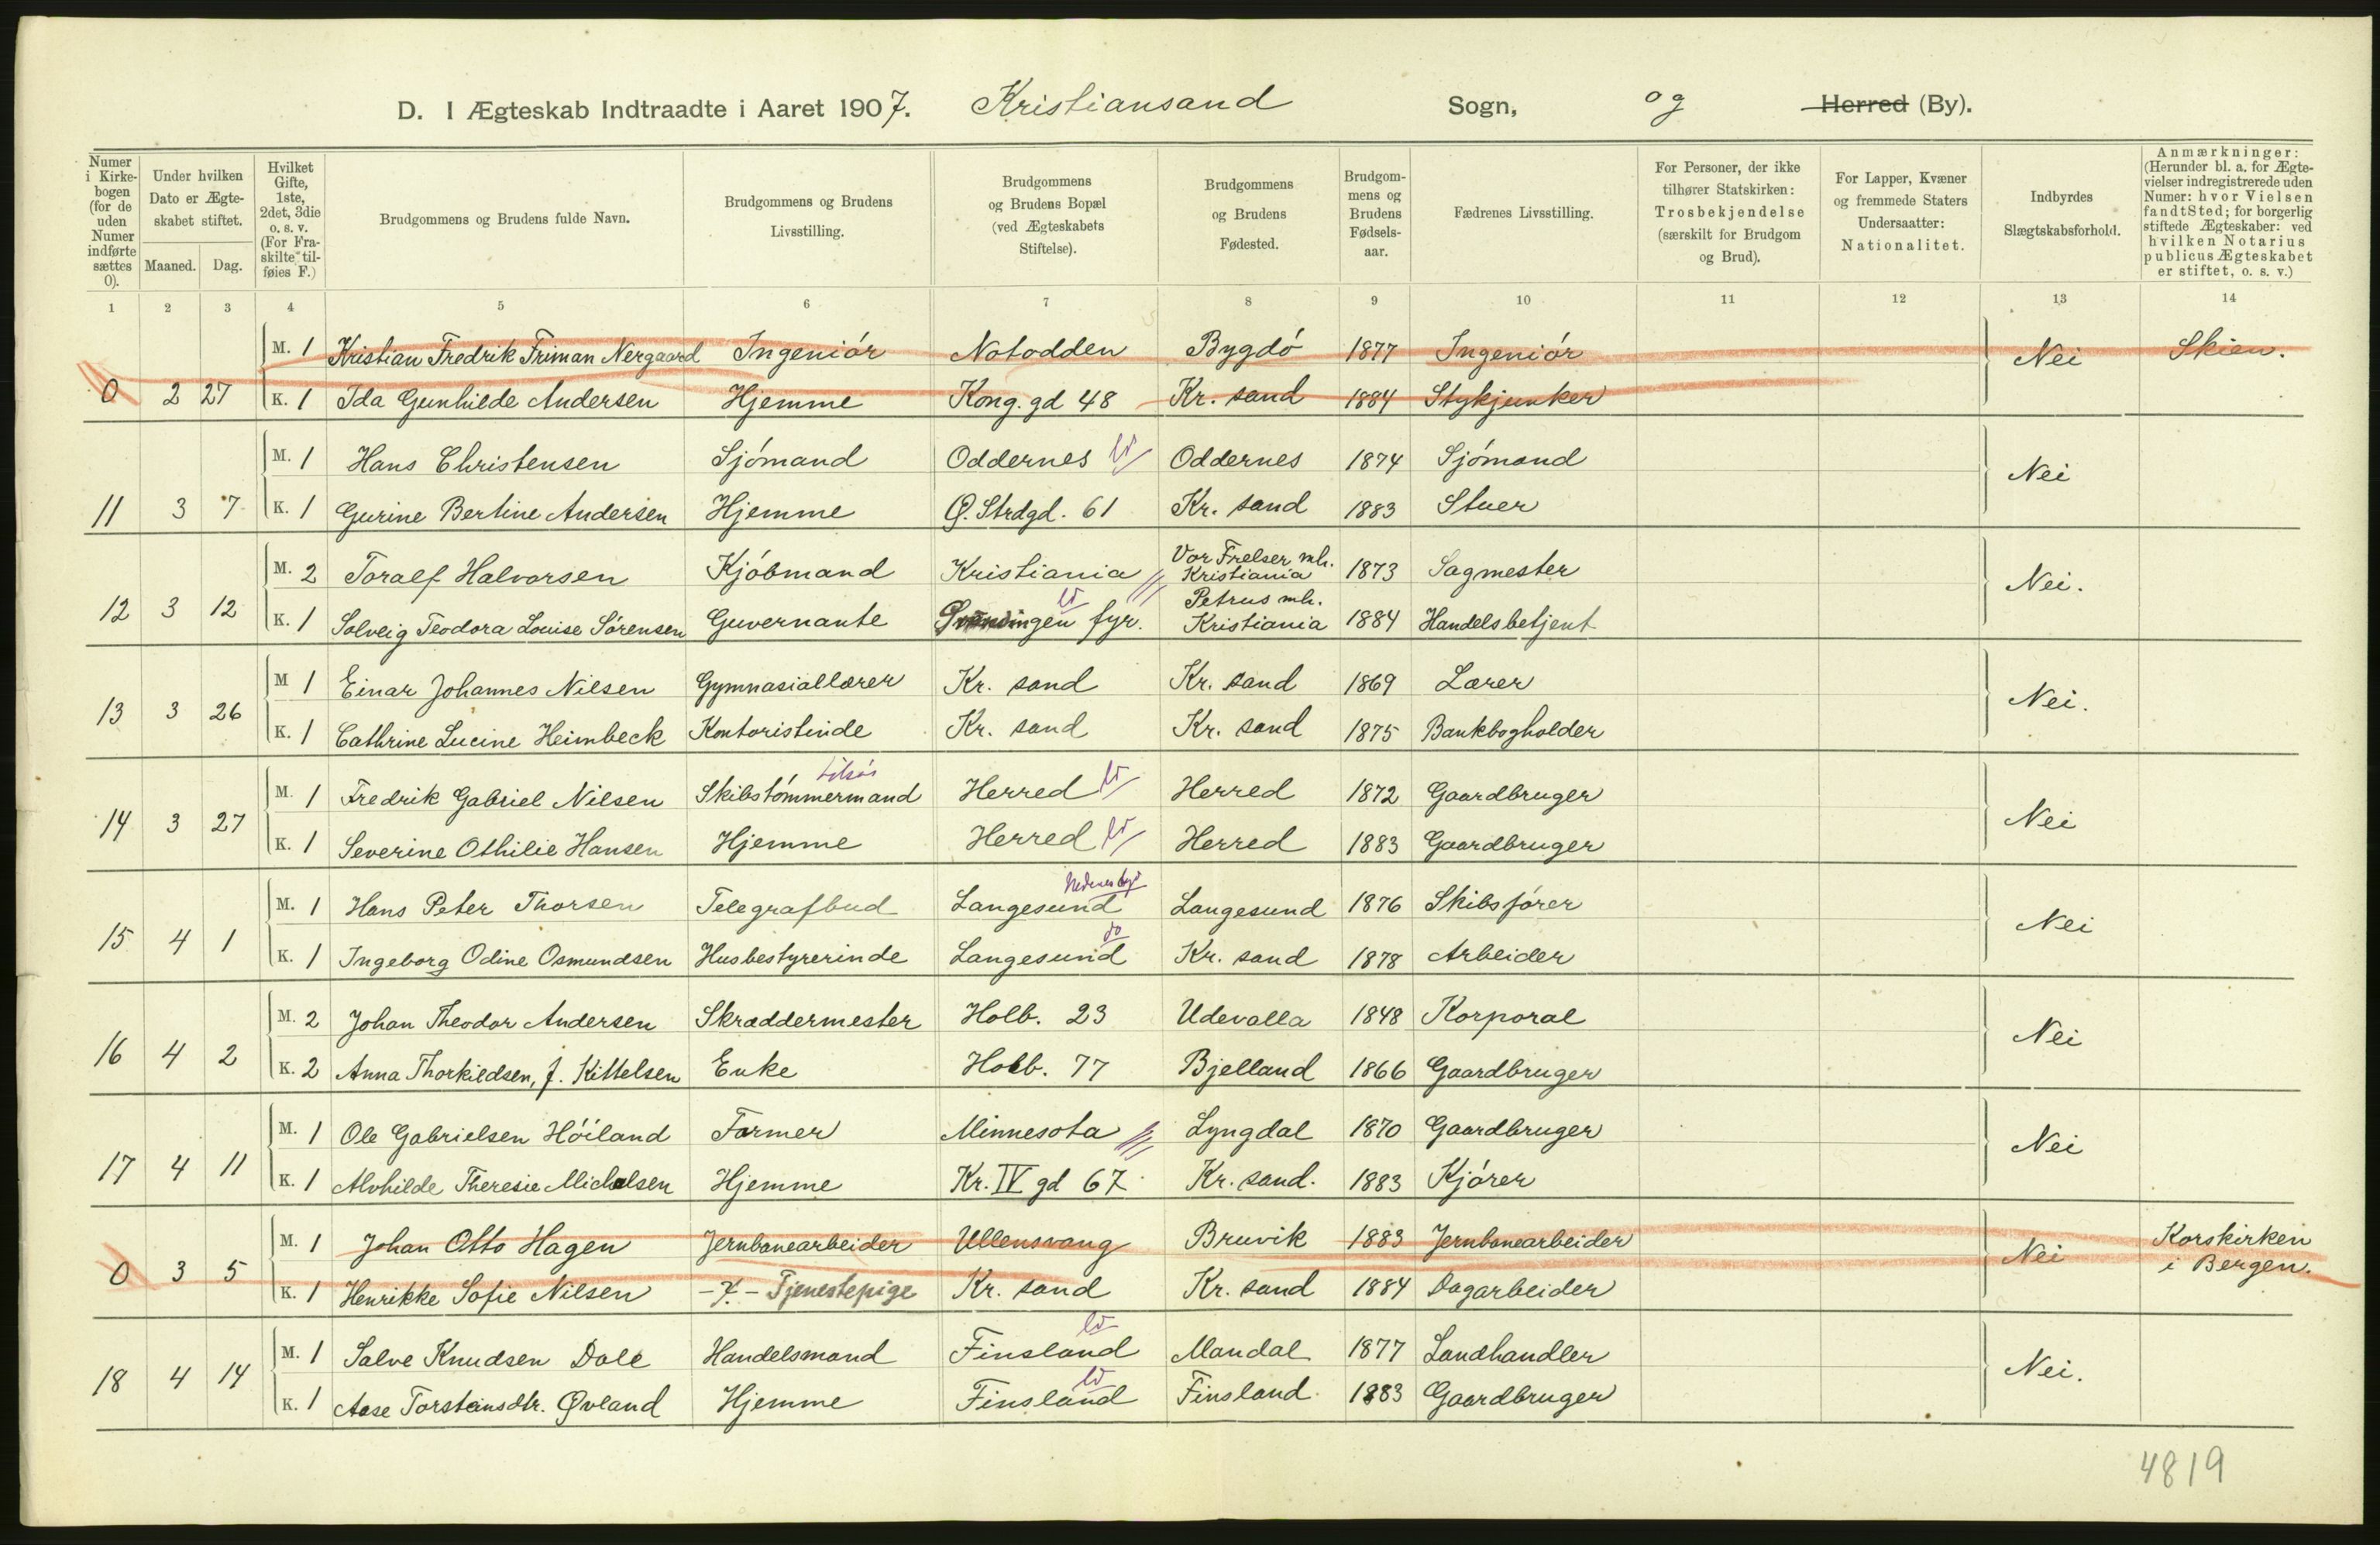 D. I Ægteskab Indtraadte i Aaret 1907. Kristiansand Sogn, og Herred (By).
Numer i Kirke-bogen (for de uden Numer indførte sættes 0).
Under hvilken Dato er Ægte-skabet stiftet.
Maaned. Dag.
Hvilket Gifte, 1ste, 2det, 3die o. s. v. (For Fra-skilte tilføies F.)
Brudgommens og Brudens fulde Navn.
Brudgommens og Brudens Livsstilling.
Brudgommens og Brudens Bopæl (ved Ægteskabets Stiftelse).
Brudgommens og Brudens Fødested.
Brudgom-mens og Brudens Fødsels-aar.
Fædrenes Livsstilling.
For Personer, der ikke tilhører Statskirken: Trosbekjendelse (særskilt for Brudgom og Brud).
For Lapper, Kvæner og fremmede Staters Undersaatter: Nationalitet.
Indbyrdes Slægtskabsforhold.
Anmærkninger: (Herunder bl. a. for Ægte-vielser indregistrerede uden Numer: hvor Vielsen fandt Sted; for borgerlig stiftede Ægteskaber: ved hvilken Notarius publicus Ægteskabet er stiftet, o. s. v.)
1 2 3 4 5 6 7 8 9 10 11 12 13 14
M. 1 Kristian Fredrik Friman Nergaard Ingeniór Notodden Bygdó 1877 Ingeniór Nei Skien.
0 2 27 K. 1 Ida Gunhilde Andersen Hjemme Kong. gd 48 Kr. sand 1884 Stykjunker
M. 1 Hans Christensen Sjómand Oddernes Oddernes 1874 Sjómand Nei
11 3 7 K. 1 Gurine Bertine Andersen Hjemme Ø. Strdgd. 61 Kr. sand 1883 Stuer
M. 2 Toralf Halvorsen Kjóbmand Kristiania Vor Frelser mh. Kristiania 1873 Sagmester Nei.
12 3 12 K. 1 Solveig Teodora Louise Sórensen Guvernante fyr. Petrus mh. Kristiania 1884 Handelsbetjent
M 1 Einar Johannes Nilsen Gymnasiallærer Kr. sand Kr. sand 1869 Lærer Nei.
13 3 26 K. 1 Cathrine Lucine Heimbeck Kontoristinde Kr. sand Kr. sand 1875 Bankbogholder
M. 1 Fredrik Gabriel Nilsen Skibstómmermand Herred Herred 1872 Gaardbruger Nei
14 3 27 K. 1 Severine Othilie Hansen Hjemme Herred Herred 1883 Gaardbruger
M. 1 Hans Peter Thorsen Telegrafbud Langesund Langesund 1876 Skibsfórer Nei
15 4 1 K. 1 Ingeborg Odine Osmundsen Husbestyrerinde Langesund do Kr. sand 1878 Arbeider
M. 2 Johan Theodor Andersen Skræddermester Holb. 23 Udevalla 1848 Korporal Nei
16 4 2 K. 2 Anna Thorkildsen, f. Kittelsen Enke Holb. 77 Bjelland 1866 Gaardbruger
M. 1 Ole Gabrielsen Hóiland Farmer Minnesota Lyngdal 1870 Gaardbruger Nei
17 4 11 K. 1 Alvhilde Theresie Michalsen Hjemme Kr. IV gd 67. Kr. sand. 1883 Kjórer
M. 1 Johan Otto Hagen Jernbanearbeider Ullensvang Bruvik 1883 Jernbanearbeider Nei Korskirken i Bergen.
0 3 5 K. 1 Henrikke Sofie Nilsen -?- Tjenestepige Kr. sand Kr. sand 1884 Dagarbeider
M. 1 Salve Knudsen Dale Handelsmand Finsland Mandal 1877 Landhandler Nei.
18 4 14 K. 1 Aase Torsteinsdtr. Øvland Hjemme Finsland Finsland 1883 Gaardbruger
4819